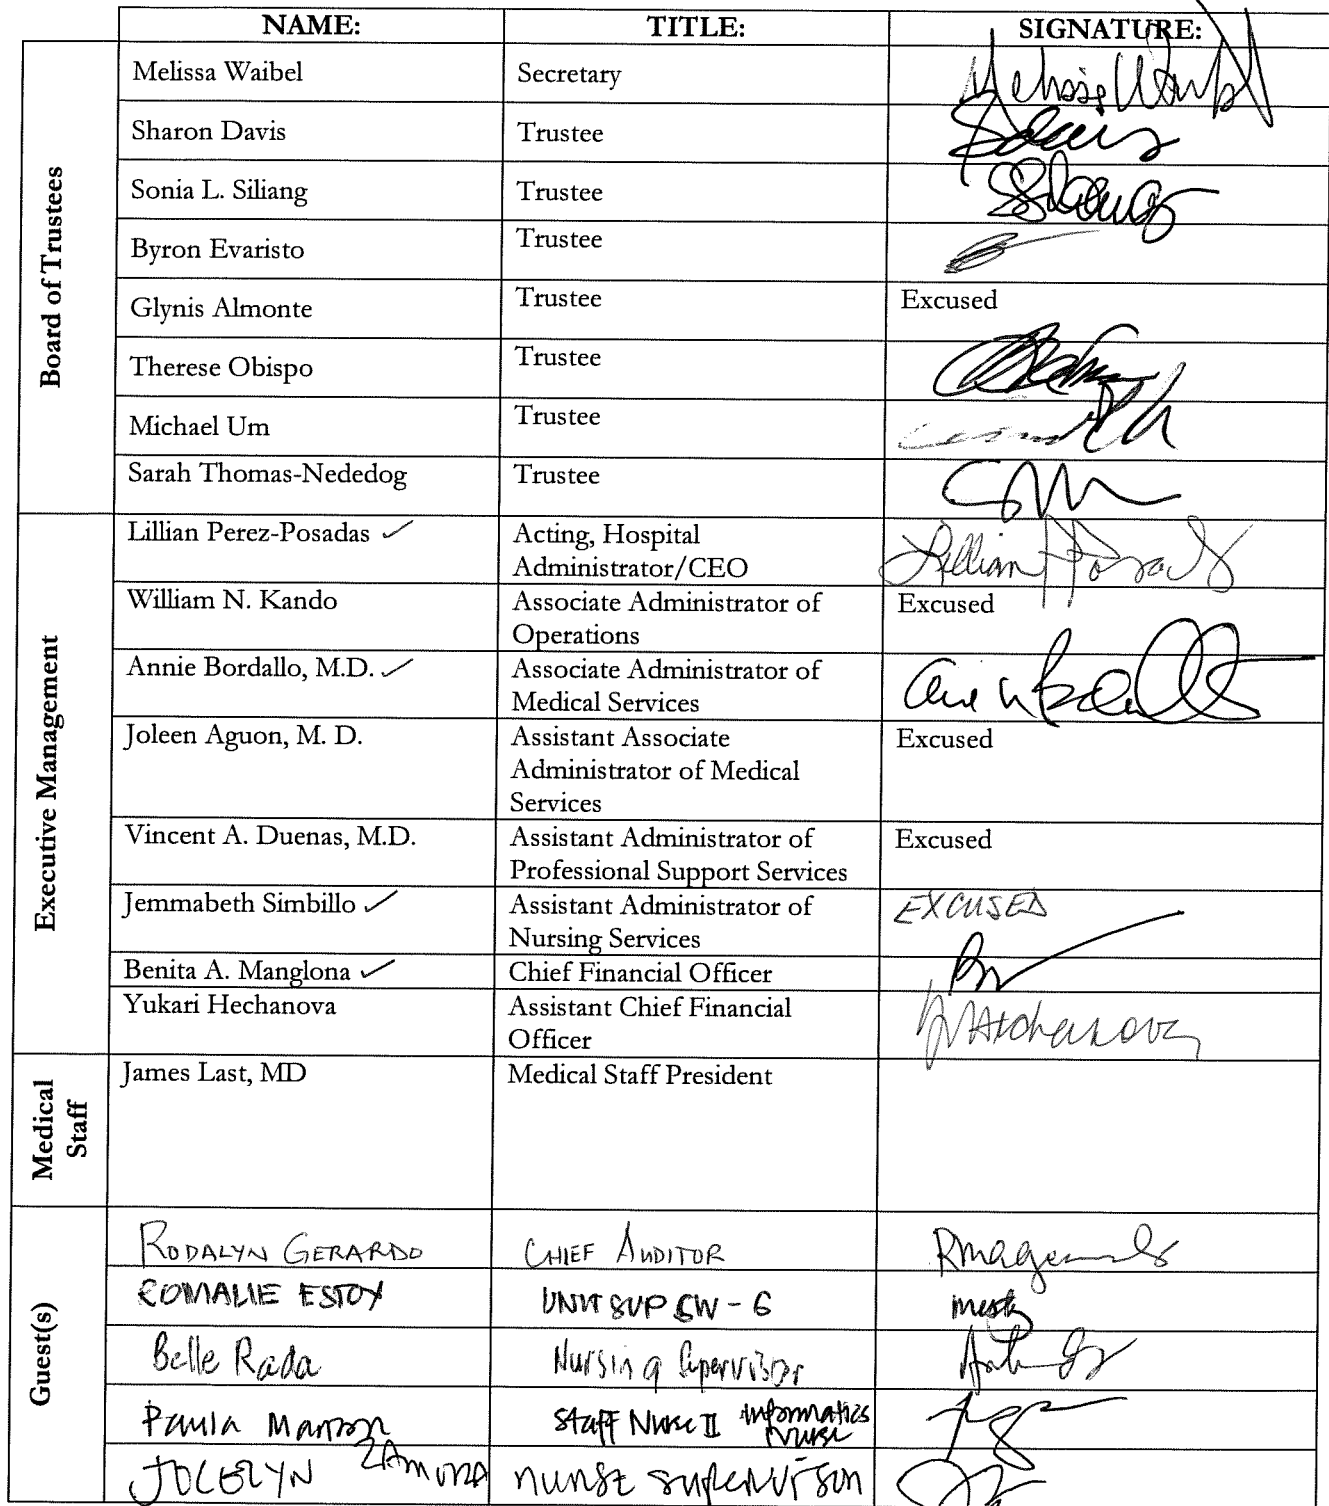 NAME: TITLE: SIGNATURE:
Board of Trustees
Melissa Waibel Secretary Melissa Waibel
Sharon Davis Trustee SDavis
Sonia L. Siliang Trustee
Byron Evaristo Trustee
Glynis Almonte Trustee Excused
Therese Obispo Trustee
Michael Um Trustee
Sarah Thomas-Nededog Trustee
Executive Management
Lillian Perez-Posadas ✓ Acting, Hospital
Administrator/CEO Lillian P Posadas
William N. Kando Associate Administrator of
Operations Excused
Annie Bordallo, M.D. ✓ Associate Administrator of
Medical Services
Joleen Aguon, M. D. Assistant Associate
Administrator of Medical
Services Excused
Vincent A. Duenas, M.D. Assistant Administrator of
Professional Support Services Excused
Jemmabeth Simbillo ✓ Assistant Administrator of
Nursing Services EXCUSED
Benita A. Manglona ✓ Chief Financial Officer
Yukari Hechanova Assistant Chief Financial
Officer
Medical
Staff
James Last, MD Medical Staff President
Guest(s)
RODALYN GERARDO CHIEF AUDITOR
ROMALIE ESTOY UNIT SUP
Belle Rada Nursing Supervisor
Paula Staff Nurse II Informatics
Nurse
JOCELYN ZAMORA nurse supervisor